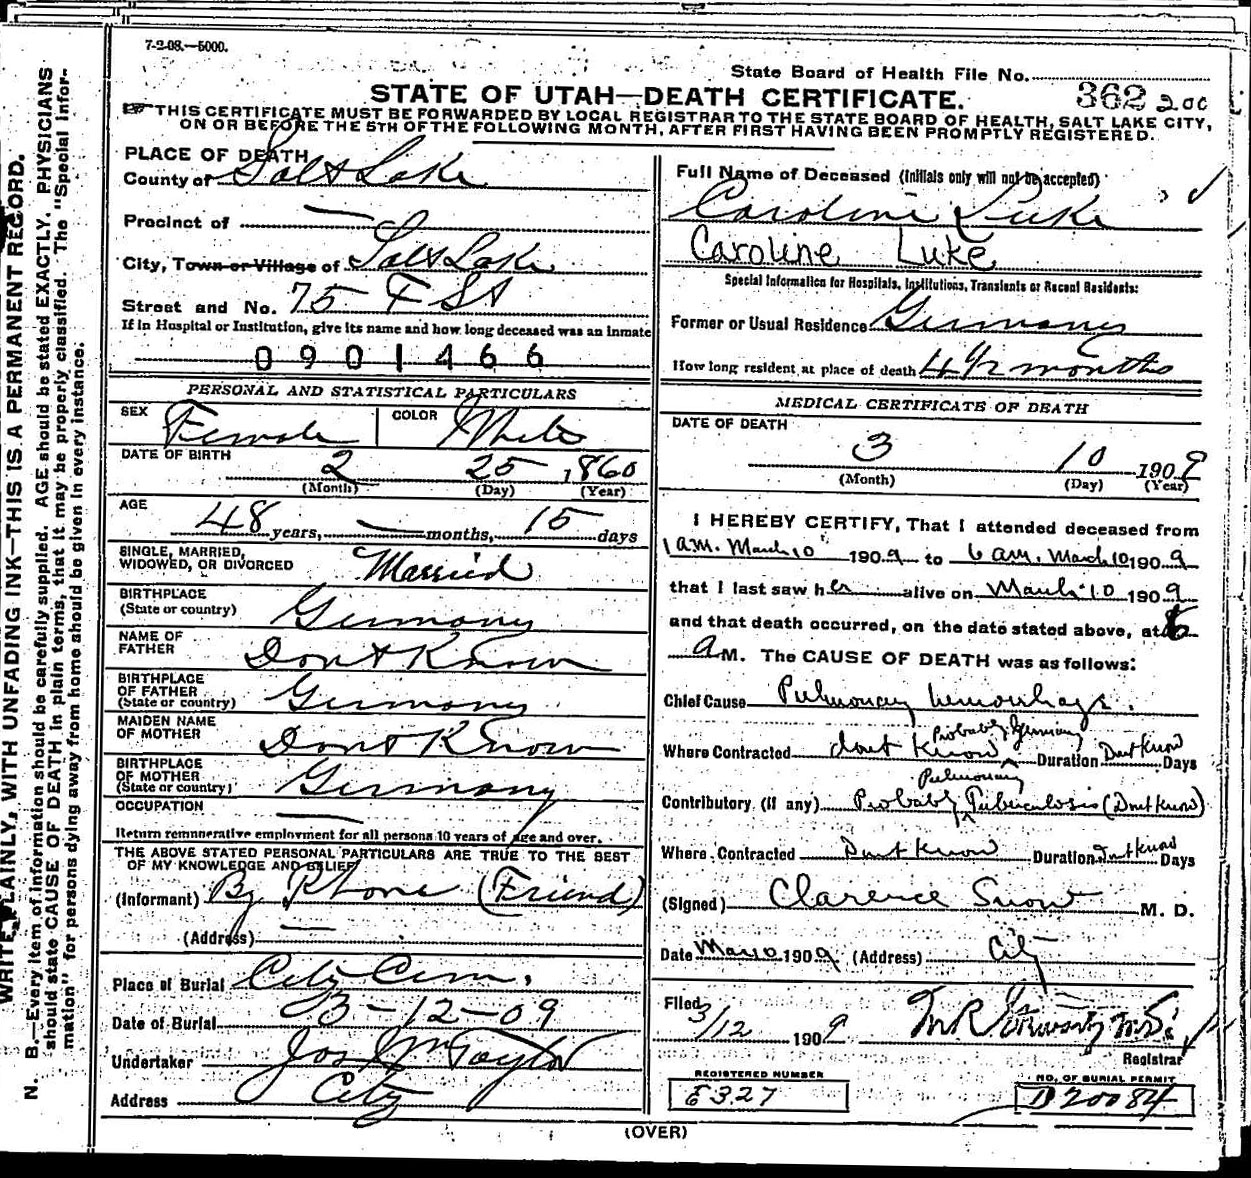 7-2-08.—5000.
State Board of Health File No. 362 200
STATE OF UTAH—DEATH CERTIFICATE.
THIS CERTIFICATE MUST BE FORWARDED BY LOCAL REGISTRAR TO THE STATE BOARD OF HEALTH, SALT LAKE CITY,
ON OR BEFORE THE 5TH OF THE FOLLOWING MONTH, AFTER FIRST HAVING BEEN PROMPTLY REGISTERED.
WRITE PLAINLY, WITH UNFADING INK—THIS IS A PERMANENT RECORD.
N. B.—Every item of information should be carefully supplied. AGE should be stated EXACTLY. PHYSICIANS
should state CAUSE OF DEATH in plain terms, that it may be properly classified. The "Special Infor-
mation" for persons dying away from home should be given in every instance.
PLACE OF DEATH
County of Salt Lake
Precinct of —
City, Town or Village of Salt Lake
Street and No. 75 F St
If in Hospital or Institution, give its name and how long deceased was an inmate
0901466
PERSONAL AND STATISTICAL PARTICULARS
SEX Female COLOR White
DATE OF BIRTH 2 25 1860
(Month) (Day) (Year)
AGE
48 years, — months, 15 days
SINGLE, MARRIED,
WIDOWED, OR DIVORCED Married
BIRTHPLACE
(State or country) Germany
NAME OF
FATHER Dont Know
BIRTHPLACE
OF FATHER
(State or country) Germany
MAIDEN NAME
OF MOTHER Dont Know
BIRTHPLACE
OF MOTHER
(State or country) Germany
OCCUPATION —
Return remunerative employment for all persons 10 years of age and over.
THE ABOVE STATED PERSONAL PARTICULARS ARE TRUE TO THE BEST
OF MY KNOWLEDGE AND BELIEF
(Informant) By Phone (Friend)
(Address) —
Place of Burial City Cem.
Date of Burial 3-12-09
Undertaker Jos Wm Taylor
Address City
Full Name of Deceased (Initials only will not be accepted)
Caroline Luke
Caroline Luke
Special Information for Hospitals, Institutions, Transients or Recent Residents:
Former or Usual Residence Germany
How long resident at place of death 4 1/2 months
MEDICAL CERTIFICATE OF DEATH
DATE OF DEATH
3 10 1909
(Month) (Day) (Year)
I HEREBY CERTIFY, That I attended deceased from
1 a.m. March 10 1909 to 6 a.m. March 10 1909
that I last saw her alive on March 10 1909
and that death occurred, on the date stated above, at 6
a M. The CAUSE OF DEATH was as follows:
Chief Cause Pulmonary hemorrhage.
Where Contracted dont know Probably Germany Duration Dont Know Days
Contributory (if any) Probably Pulmonary Tuberculosis (Dont Know)
Where Contracted Dont Know Duration Dont Know Days
(Signed) Clarence Snow M. D.
Date Mar 10 1909 (Address) City
Filed 3/12 1909
Registrar
REGISTERED NUMBER
E327
NO. OF BURIAL PERMIT
D20084
(OVER)